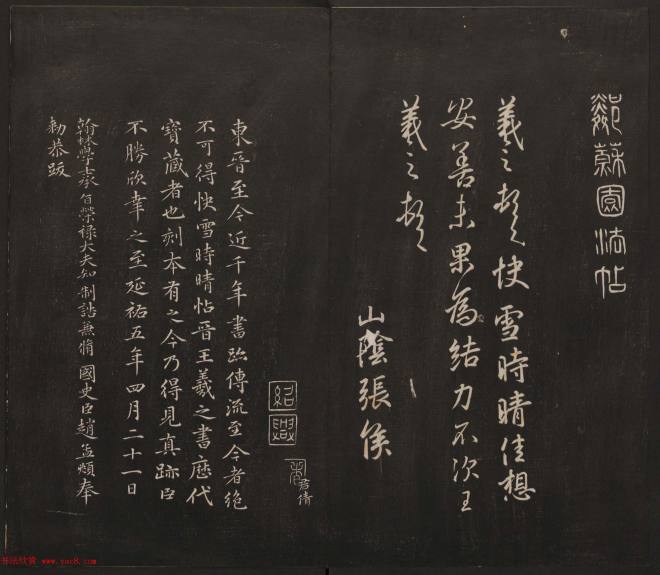 鄰蘇園法帖
羲之頓首快雪時晴佳想
安善未果為結力不次王
羲之頓首
山陰張侯
紹興
君倩
東晉至今近千年書跡傳流至今者絕
不可得快雪時晴帖晉王羲之書歷代
寶藏者也刻本有之今乃得見真跡臣
不勝欣幸之至延祐五年四月二十一日
翰林學士承旨榮祿大夫知制誥兼脩國史臣趙孟頫奉
勑恭跋
书法欣赏 www.yac8.com